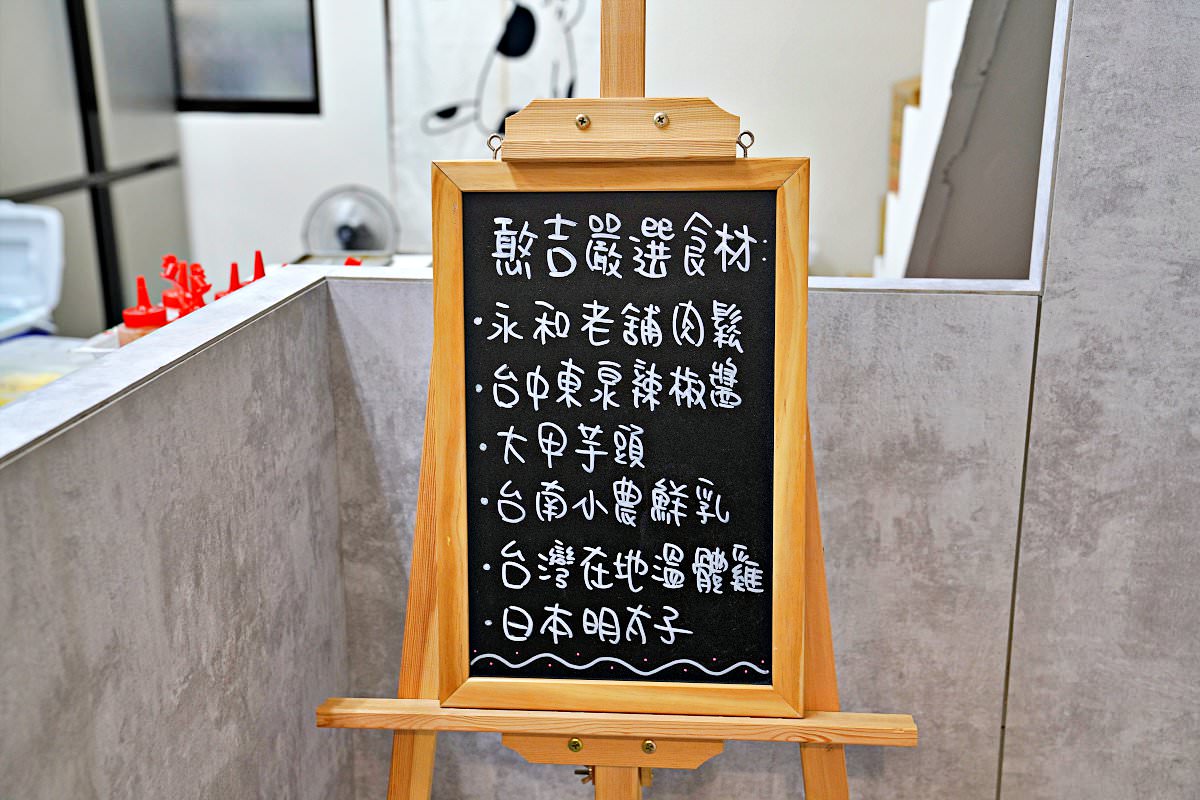 憨吉嚴選食材:
·永和老舖肉鬆
·台中東泉辣椒醬
·大甲芋頭
·台南小農鮮乳
·台灣在地溫體雞
·日本明太子